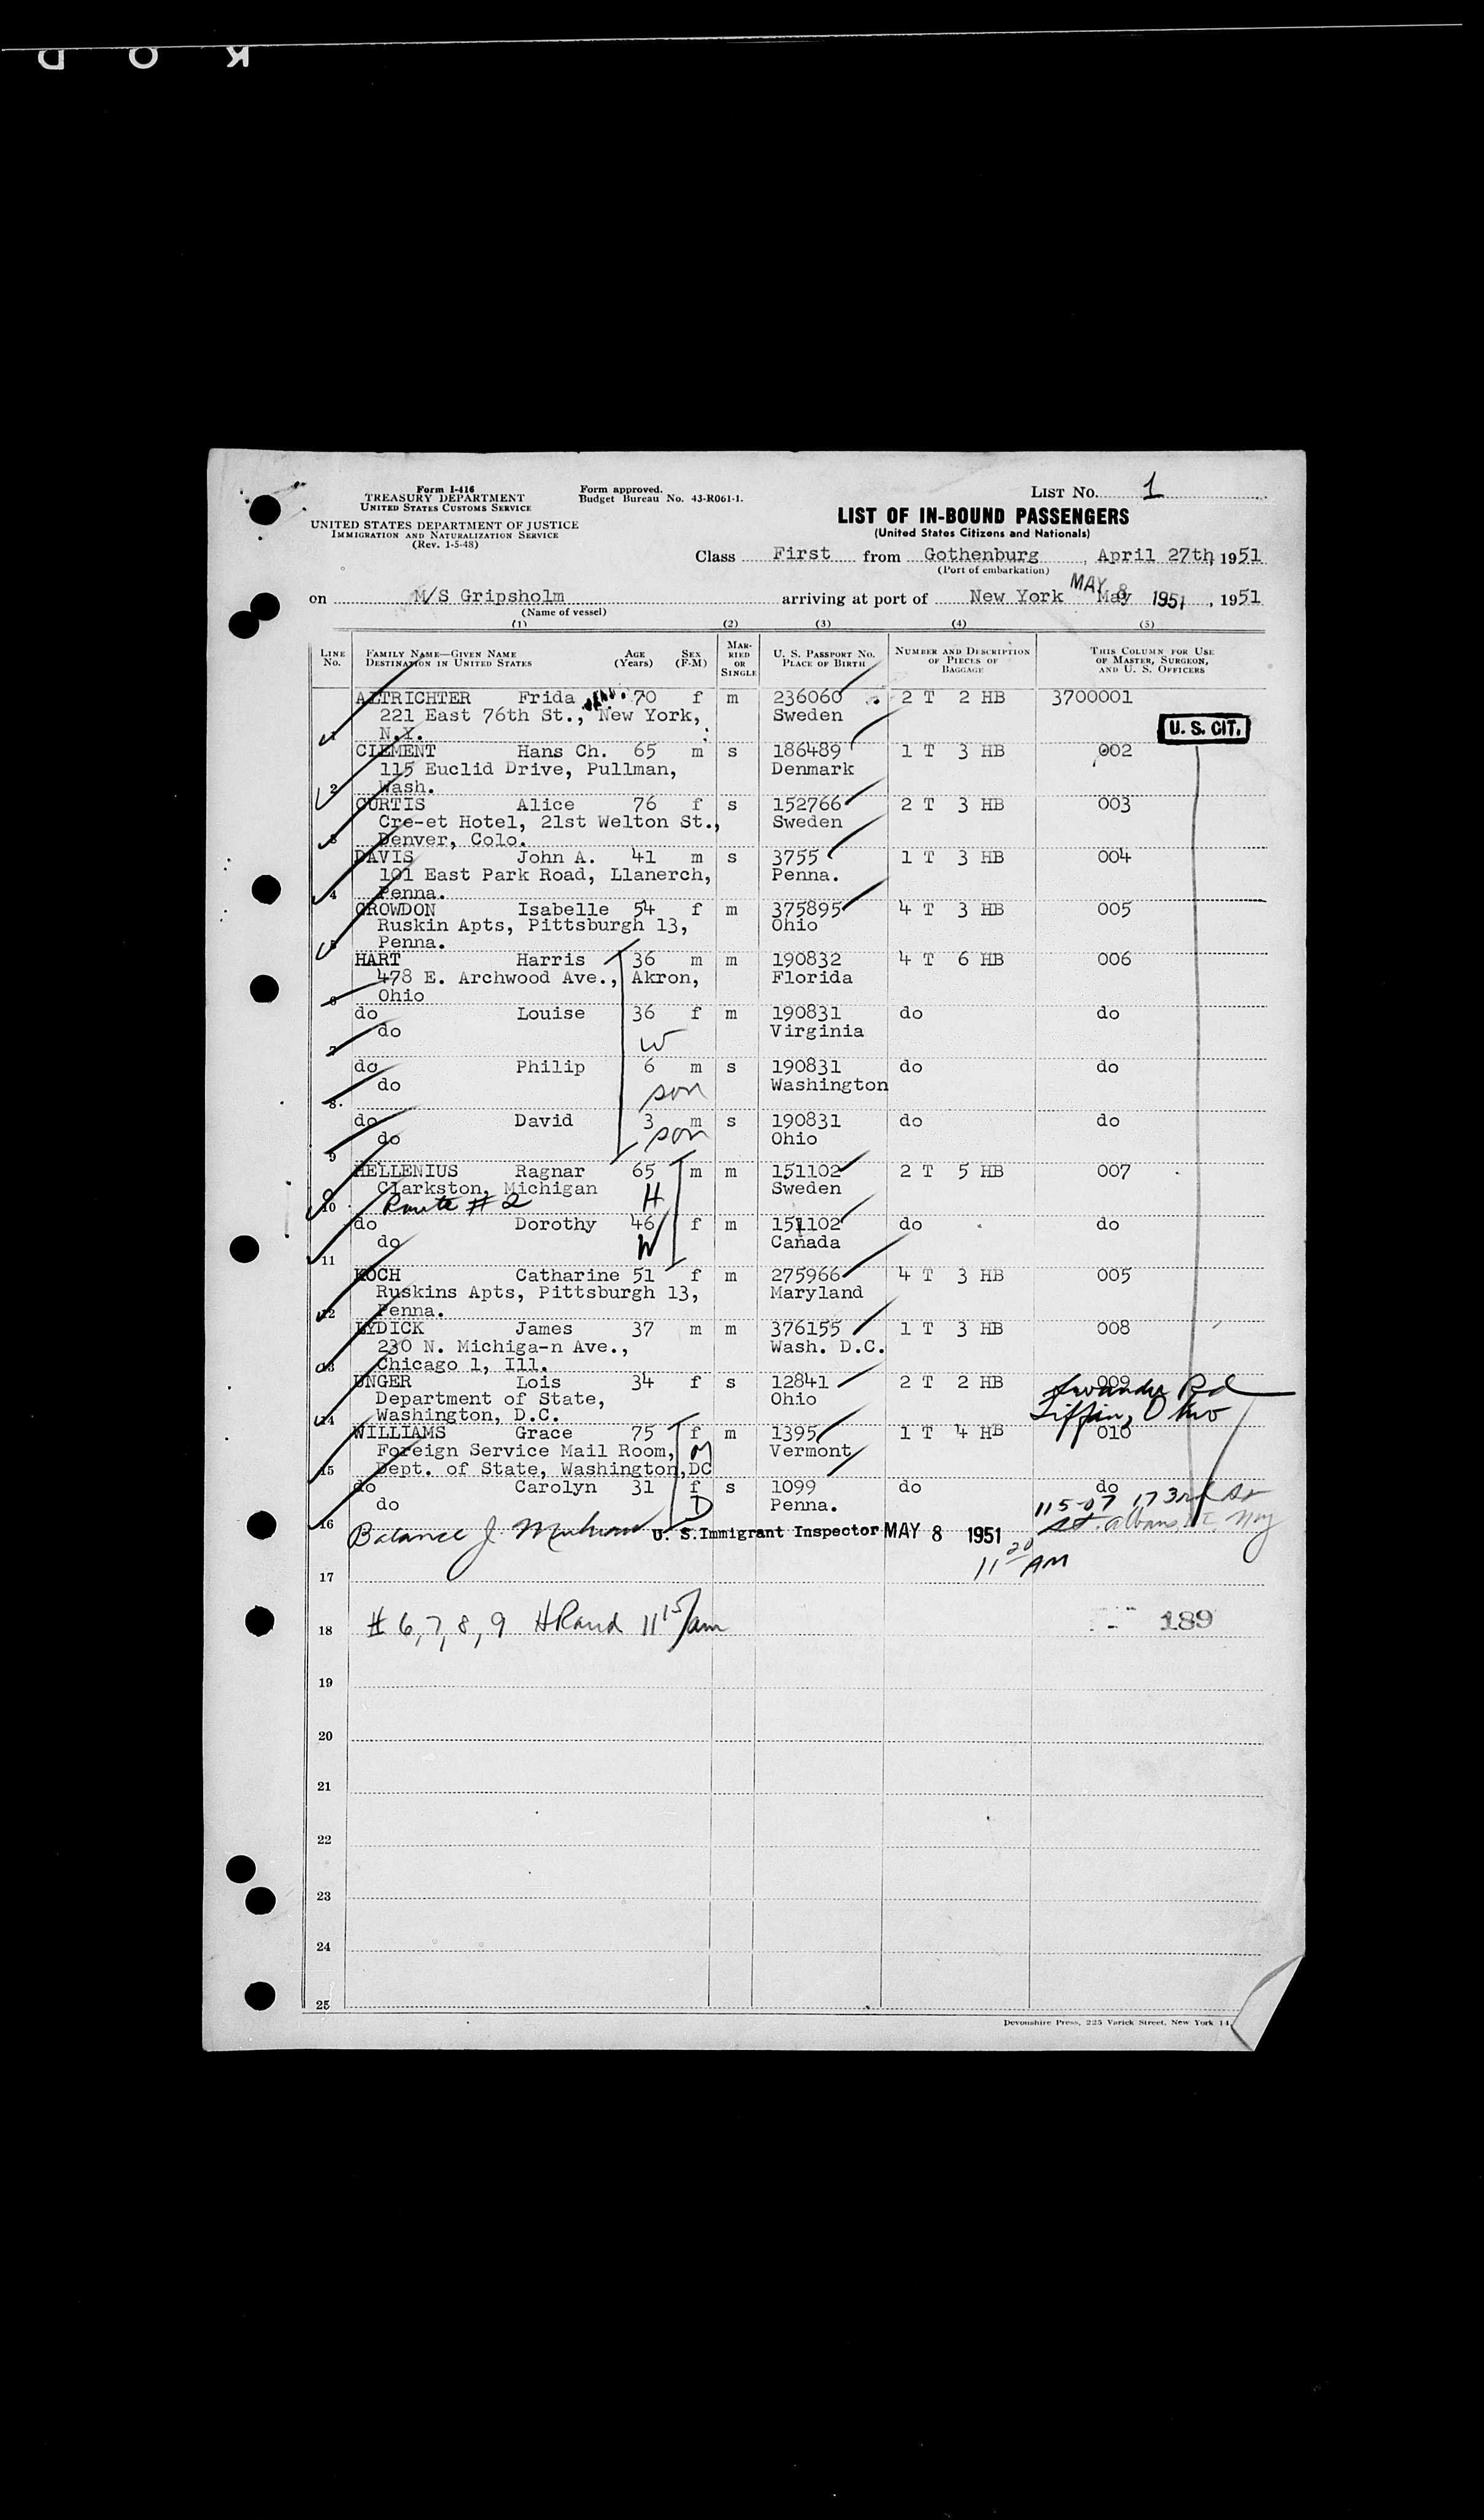 K O D
Form I-416
TREASURY DEPARTMENT
UNITED STATES CUSTOMS SERVICE
UNITED STATES DEPARTMENT OF JUSTICE
IMMIGRATION AND NATURALIZATION SERVICE
(Rev. 1-5-48)
Form approved.
Budget Bureau No. 43-R061-1.
LIST No. 1
LIST OF IN-BOUND PASSENGERS
(United States Citizens and Nationals)
Class First from Gothenburg, April 27th, 1951
(Port of embarkation)
on M/S Gripsholm arriving at port of New York May, 1951
MAY 8 1951
(Name of vessel)
(1) (2) (3) (4) (5)
LINE No. FAMILY NAME—GIVEN NAME DESTINATION IN UNITED STATES AGE (Years) SEX (F-M) MARRIED OR SINGLE U. S. PASSPORT NO. PLACE OF BIRTH NUMBER AND DESCRIPTION OF PIECES OF BAGGAGE THIS COLUMN FOR USE OF MASTER, SURGEON, AND U. S. OFFICERS
ALTRICHTER Frida 70 f m 236060 2 T 2 HB 3700001
221 East 76th St., New York, Sweden
1 N.Y.
U. S. CIT.
CLEMENT Hans Ch. 65 m s 186489 1 T 3 HB 002
115 Euclid Drive, Pullman, Denmark
2 Wash.
CURTIS Alice 76 f s 152766 2 T 3 HB 003
Cre-et Hotel, 21st Welton St., Sweden
3 Denver, Colo.
DAVIS John A. 41 m s 3755 1 T 3 HB 004
101 East Park Road, Llanerch, Penna.
4 Penna.
CROWDON Isabelle 54 f m 375895 4 T 3 HB 005
Ruskin Apts, Pittsburgh 13, Ohio
5 Penna.
HART Harris 36 m m 190832 4 T 6 HB 006
478 E. Archwood Ave., Akron, Florida
6 Ohio
do Louise 36 f m 190831 do do
do Virginia
7 W
do Philip 6 m s 190831 do do
do Washington
8. son
do David 3 m s 190831 do do
do son Ohio
9
HELLENIUS Ragnar 65 m m 151102 2 T 5 HB 007
Clarkston, Michigan Sweden
10 Route # 2 H
do Dorothy 46 f m 151102 do do
do W Canada
11
KOCH Catharine 51 f m 275966 4 T 3 HB 005
Ruskins Apts, Pittsburgh 13, Maryland
12 Penna.
LYDICK James 37 m m 376155 1 T 3 HB 008
230 N. Michiga-n Ave., Wash. D.C.
13 Chicago 1, Ill.
UNGER Lois 34 f s 12841 2 T 2 HB 009
Department of State, Ohio Rd
14 Washington, D.C. Tiffin, Ohio
WILLIAMS Grace 75 f m 1395 1 T 4 HB 010
Foreign Service Mail Room, M Vermont
15 Dept. of State, Washington,DC
do Carolyn 31 f s 1099 do do
do D Penna. 115-07 173rd St
16 St. Albans, NY
Balance J. U. S. Immigrant Inspector MAY 8 1951
11 20 AM
17
18 # 6, 7, 8, 9 HRand 11 15/am 189
19
20
21
22
23
24
25
Devonshire Press, 225 Varick Street, New York 14